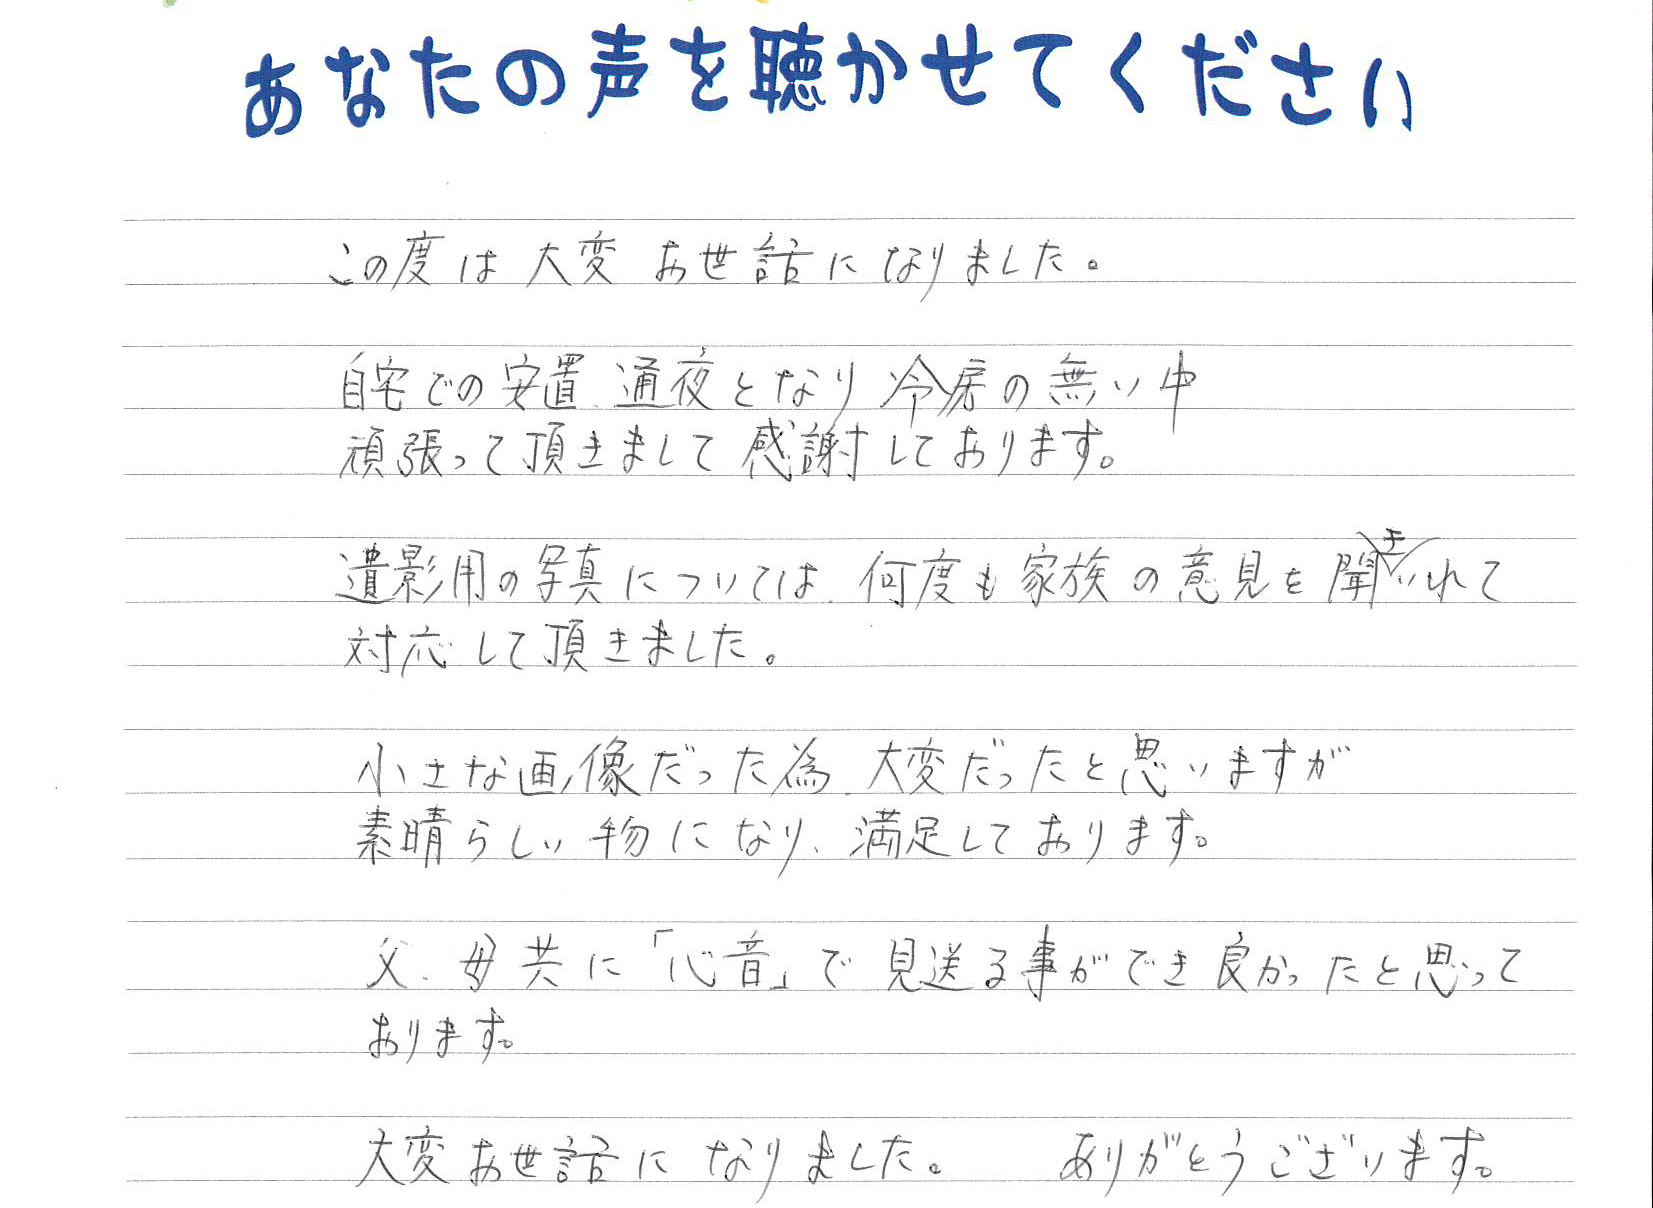 あなたの声を聴かせてください
この度は大変お世話になりました。
自宅での安置、通夜となり冷房の無い中
頑張って頂きまして感謝しております。
遺影用の写真については、何度も家族の意見を聞きいれて
対応して頂きました。
小さな画像だった為、大変だったと思いますが
素晴らしい物になり、満足しております。
父、母共に「心音」で見送る事ができ良かったと思って
おります。
大変お世話になりました。 ありがとうございます。